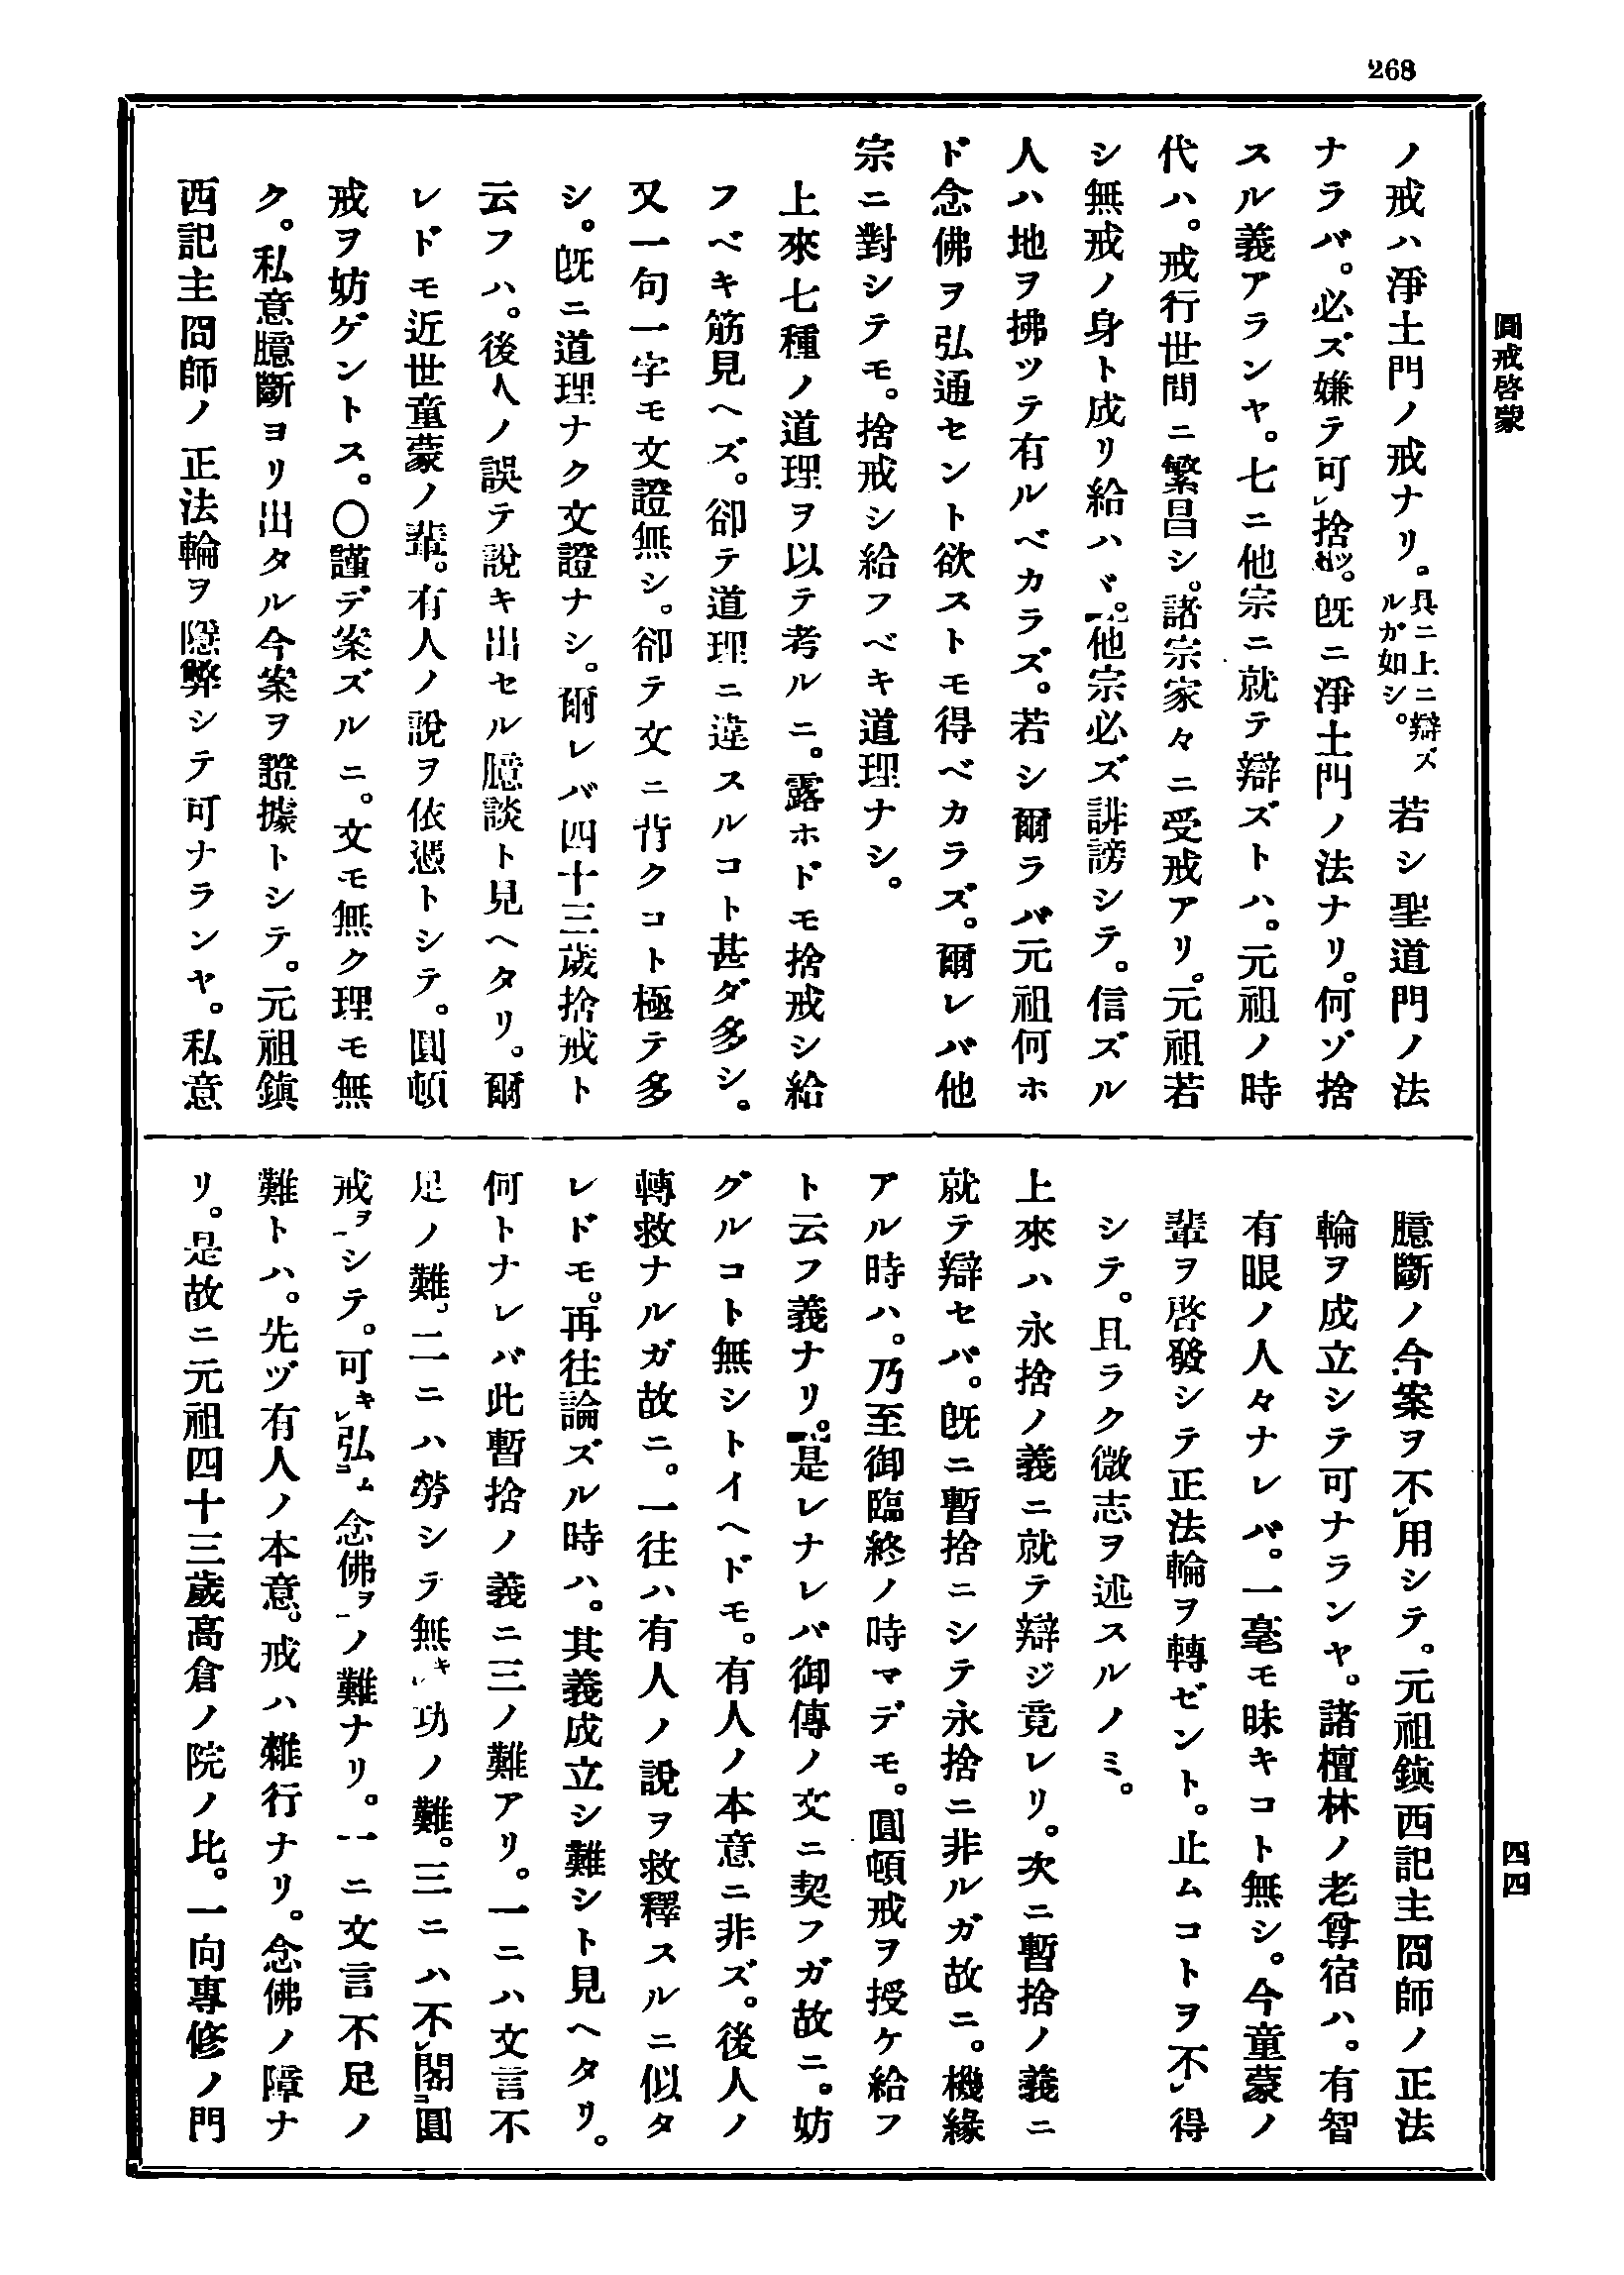 268
圓戒啓蒙
四四
ノ戒ハ淨土門ノ戒ナリ。具ニ上ニ辯ズルガ如シ。若シ聖道門ノ法
ナラバ。必ズ嫌テ可レ捨ツ。既ニ淨土門ノ法ナリ。何ゾ捨
スル義アランヤ。七ニ他宗ニ就テ辯ズトハ。元祖ノ時
代ハ。戒行世間ニ繁昌シ。諸宗家々ニ受戒アリ。元祖若
シ無戒ノ身ト成リ給ハヾ。他宗必ズ誹謗シテ。信ズル
人ハ地ヲ拂ツテ有ルベカラズ。若シ爾ラバ元祖何ホ
ド念佛ヲ弘通セント欲ストモ得ベカラズ。爾レバ他
宗ニ對シテモ。捨戒シ給フベキ道理ナシ。
上來七種ノ道理ヲ以テ考ルニ。露ホドモ捨戒シ給
フベキ筋見ヘズ。卻テ道理ニ違スルコト甚ダ多シ。
又一句一字モ文證無シ。卻テ文ニ背クコト極テ多
シ。既ニ道理ナク文證ナシ。爾レバ四十三歲捨戒ト
云フハ。後人ノ誤テ說キ出セル臆談ト見ヘタリ。爾
レドモ近世童蒙ノ輩。有人ノ說ヲ依憑トシテ。圓頓
戒ヲ妨ゲントス。〇謹デ案ズルニ。文モ無ク理モ無
ク。私意臆斷ヨリ出タル今案ヲ證據トシテ。元祖鎭
西記主冏師ノ正法輪ヲ隱弊シテ可ナランヤ。私意
臆斷ノ今案ヲ不レ用シテ。元祖鎭西記主冏師ノ正法
輪ヲ成立シテ可ナランヤ。諸檀林ノ老尊宿ハ。有智
有眼ノ人々ナレバ。一毫モ昧キコト無シ。今童蒙ノ
輩ヲ啓發シテ正法輪ヲ轉ゼント。止ムコトヲ不レ得
シテ。且ラク微志ヲ述スルノミ。
上來ハ永捨ノ義ニ就テ辯ジ竟レリ。次ニ暫捨ノ義ニ
就テ辯セバ。既ニ暫捨ニシテ永捨ニ非ルガ故ニ。機緣
アル時ハ。乃至御臨終ノ時マデモ。圓頓戒ヲ授ケ給フ
ト云フ義ナリ。是レナレバ御傳ノ文ニ契フガ故ニ。妨
グルコト無シトイヘドモ。有人ノ本意ニ非ズ。後人ノ
轉救ナルガ故ニ。一往ハ有人ノ說ヲ救釋スルニ似タ
レドモ。再往論ズル時ハ。其義成立シ難シト見ヘタリ。
何トナレバ此暫捨ノ義ニ三ノ難アリ。一ニハ文言不
足ノ難。二ニハ勞シテ無レキ功ノ難。三ニハ不レ閣二圓
戒ヲ一シテ。可キレ弘ム二念佛ヲ一ノ難ナリ。一ニ文言不足ノ
難トハ。先ヅ有人ノ本意。戒ハ雜行ナリ。念佛ノ障ナ
リ。是故ニ元祖四十三歲高倉ノ院ノ比。一向專修ノ門